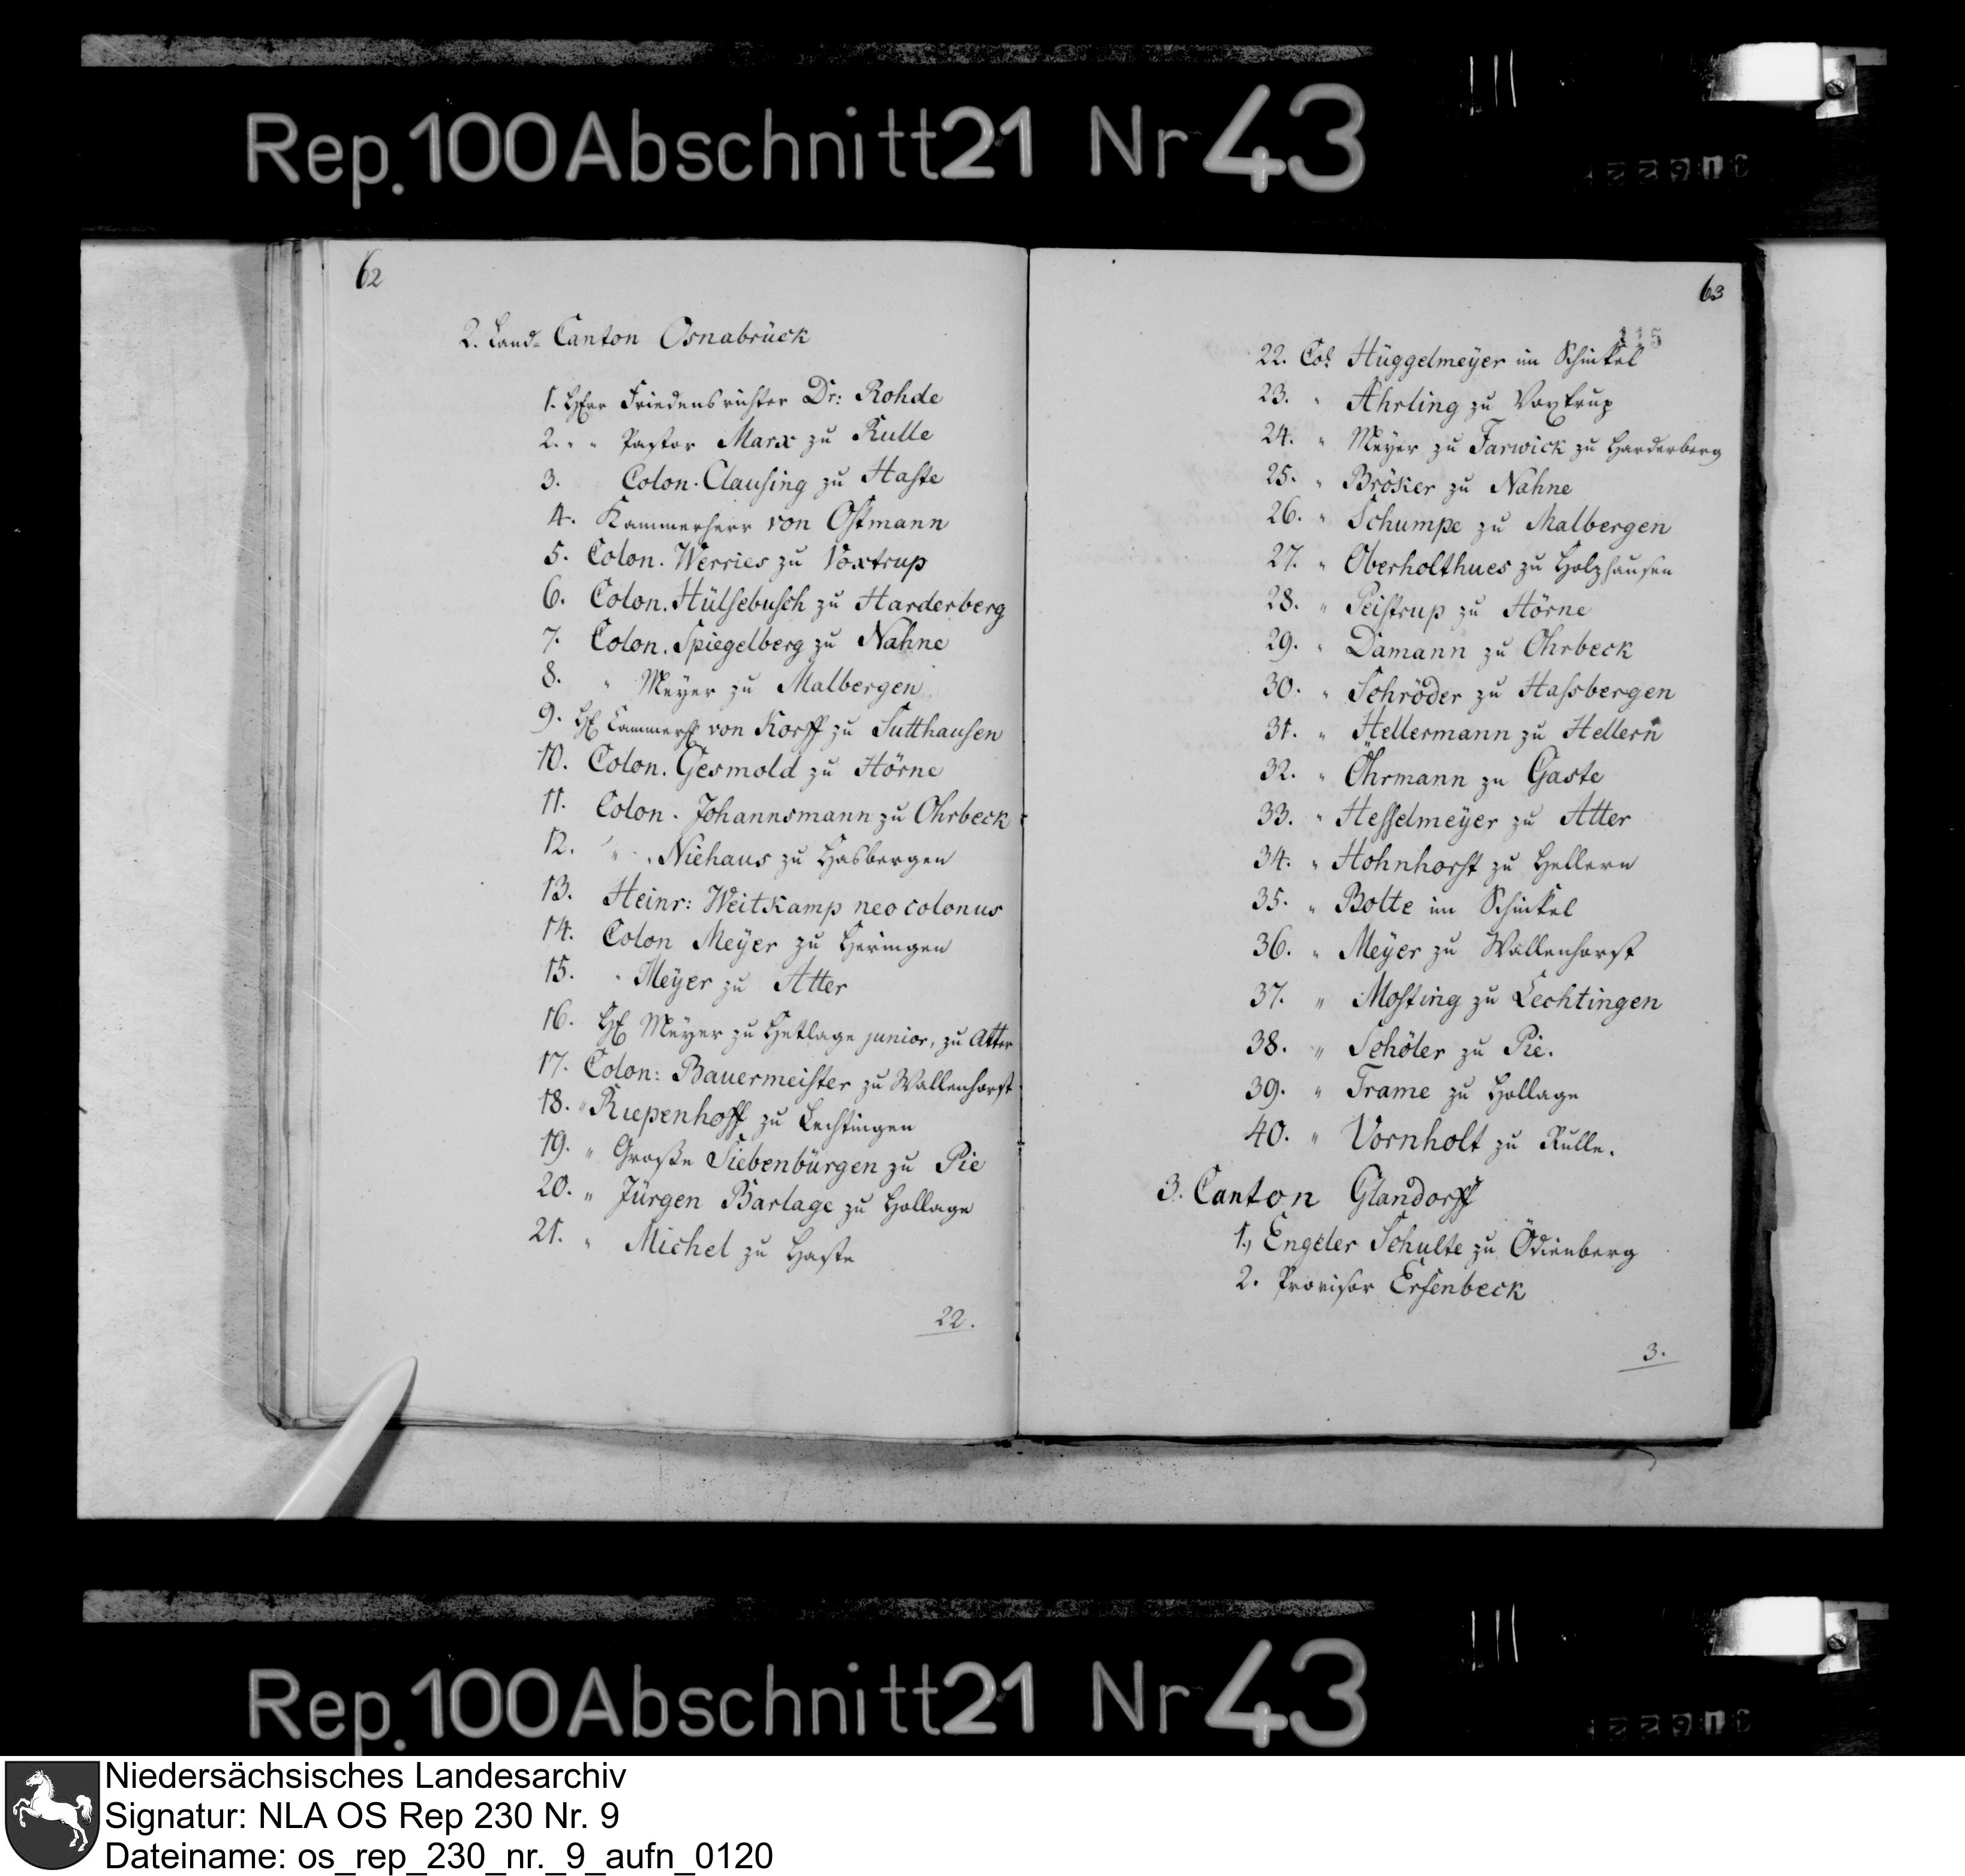 Rep. 100 Abschnitt 21 Nr 43
62
2. Land- Canton Osnabrück
1. Herr Friedensrichter Dr: Rohde
2. " " Pastor Marx zu Rulle
3. Colon. Clausing zu Haste
4. Kammerherr von Ostmann
5. Colon. Werries zu Voxtrup
6. Colon. Hülsebusch zu Harderberg
7. Colon. Spiegelberg zu Nahne
8. " Meyer zu Malbergen
9. H. Cammerh. von Korff zu Sutthausen
10. Colon. Gesmold zu Hörne
11. Colon. Johannsmann zu Ohrbeck
12. " Niehaus zu Hasbergen
13. Heinr: Weitkamp neo colonus
14. Colon Meÿer zu Heringen
15. " Meÿer zu Atter
16. H. Meÿer zu Hetlage junior, zu Atter
17. Colon: Bauermeister zu Wallenhorst
18. " Riepenhoff zu Lechtingen
19. " Große Siebenbürgen zu Pie
20. " Jürgen Barlage zu Hollage
21. " Michel zu Haste
22.
63
115
22. Col. Hüggelmeÿer im Schinkel
23. " Ahrling zu Voxtrup
24. " Meÿer zu Farwick zu Harderberg
25. " Bröker zu Nahne
26. " Schumpe zu Malbergen
27. " Oberholthues zu Holzhausen
28. " Peistrup zu Hörne
29. " Damann zu Ohrbeck
30. " Schröder zu Hasbergen
31. " Hellermann zu Hellern
32. " Öhrmann zu Gaste
33. " Hesselmeÿer zu Atter
34. " Hohnhorst zu Hellern
35. " Bolte im Schinkel
36. " Meÿer zu Wallenhorst
37. " Mosting zu Lechtingen
38. " Schöler zu Pie.
39. " Trame zu Hollage
40. " Vornholt zu Rulle.
3. Canton Glandorff
1., Engeler Schulte zu Ödienberg
2. Provisor Ersenbeck
3.
Rep. 100 Abschnitt 21 Nr 43
Niedersächsisches Landesarchiv
Signatur: NLA OS Rep 230 Nr. 9
Dateiname: os_rep_230_nr._9_aufn_0120